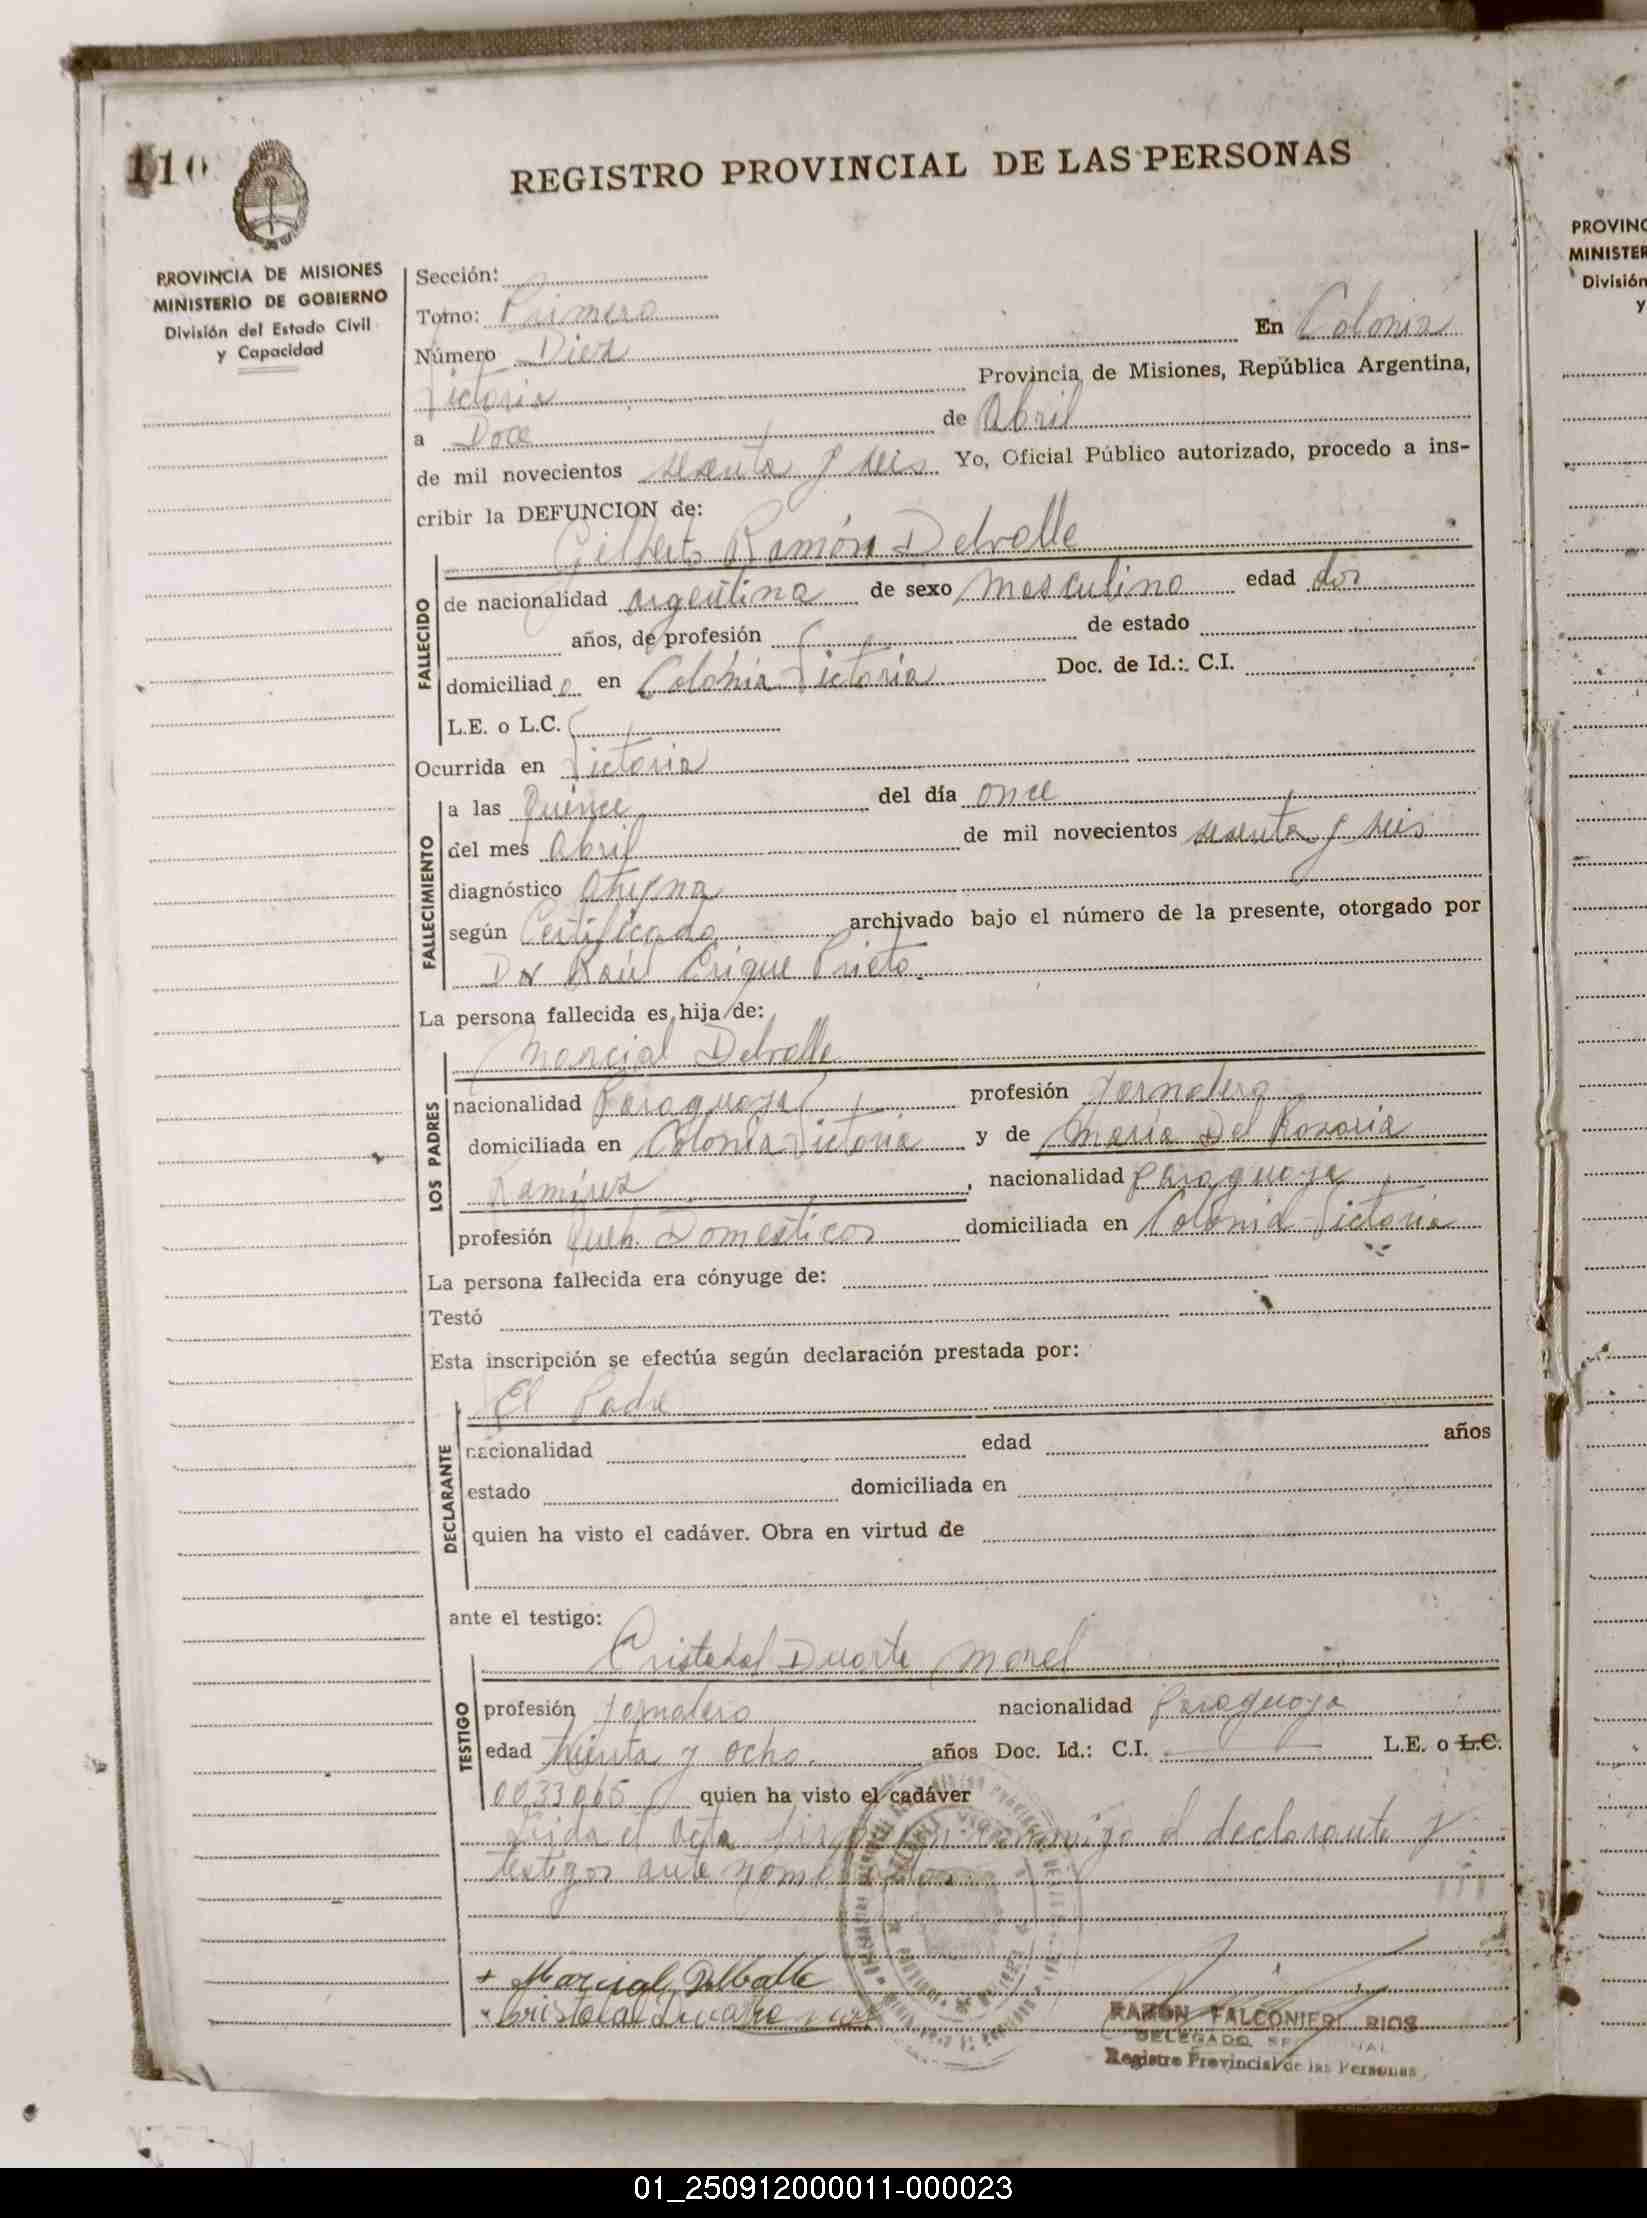 110
REGISTRO PROVINCIAL DE LAS PERSONAS
PROVINCIA DE MISIONES
MINISTERIO DE GOBIERNO
División del Estado Civil
y Capacidad
Sección:
Tomo: Primero
Número Diez En Colonia
Victoria Provincia de Misiones, República Argentina,
a Doce de Abril
de mil novecientos sesenta y seis Yo, Oficial Público autorizado, procedo a ins-
cribir la DEFUNCION de:
Gilberto Ramón Delvalle
FALLECIDO
de nacionalidad argentina de sexo masculino edad dos
años, de profesión de estado
domiciliado en Colonia Victoria Doc. de Id.: C.I.
L.E. o L.C.
Ocurrida en Victoria
FALLECIMIENTO
a las Quince del día once
del mes Abril de mil novecientos sesenta y seis
diagnóstico
según Certificado archivado bajo el número de la presente, otorgado por
Dr Raúl Erique Prieto.
La persona fallecida es hija de:
Marcial Delvalle
LOS PADRES
nacionalidad Paraguaya profesión Jornalero
domiciliada en Colonia Victoria y de María Del Rosario
Ramírez, nacionalidad paraguaya
profesión Queh. Domesticos domiciliada en Colonia Victoria
La persona fallecida era cónyuge de:
Testó
Esta inscripción se efectúa según declaración prestada por:
El Padre
DECLARANTE
nacionalidad edad años
estado domiciliada en
quien ha visto el cadáver. Obra en virtud de
ante el testigo:
Cristobal Duarte Morel
TESTIGO
profesión Jornalero nacionalidad Paraguaya
edad treinta y ocho. años Doc. Id.: C.I. L.E. o L.C.
0033065 quien ha visto el cadáver
Leida el acta firman conmigo el declarante y
testigos ante nombrados
+ Marcial Delvalle
RAMON FALCONIERI RIOS
DELEGADO
Registro Provincial de las Personas
PROVINC
MINISTER
División
y
01_250912000011-000023